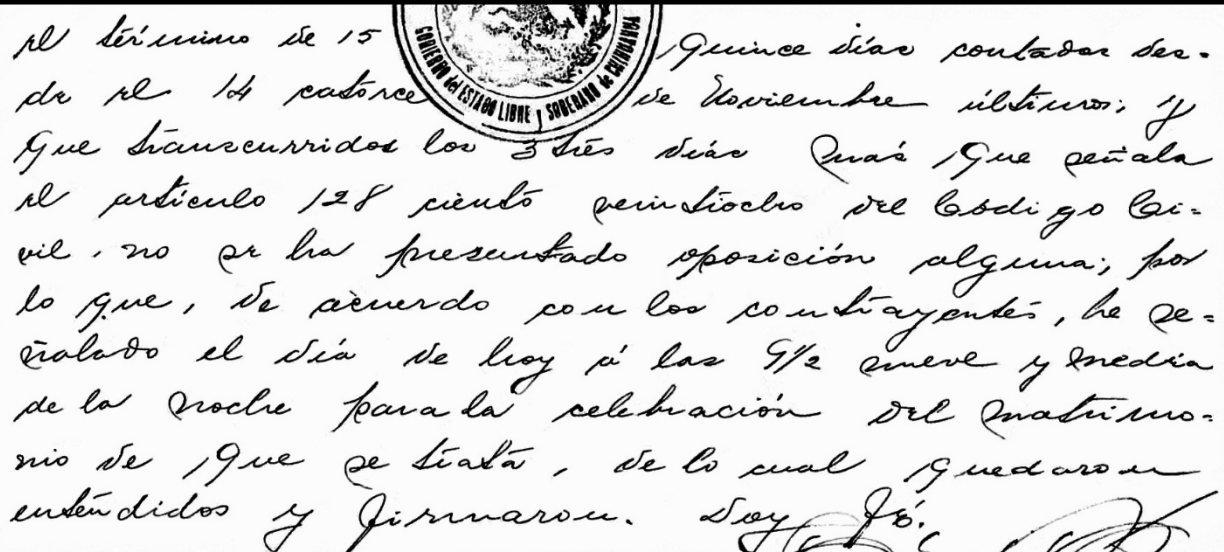 el término de 15 quince días contados des-
GOBIERNO del ESTADO LIBRE y SOBERANO de CHIHUAHUA
de el 14 catorce de Noviembre último; y
que transcurridos los 3 tres días más que señala
el artículo 128 ciento veintiocho del Código Ci-
vil, no se ha presentado oposición alguna; por
lo que, de acuerdo con los contrayentes, he se-
ñalado el día de hoy á las 9 1/2 nueve y media
de la noche para la celebración del matrimo-
nio de que se trata, de lo cual quedaron
entendidos y firmaron. Doy fé.